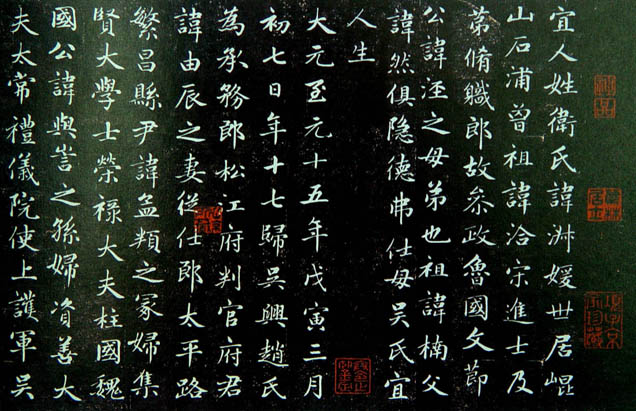 宜人姓衛氏諱淑媛世居崐
山石浦曾祖諱洽宋進士及
苐脩職郎故叅政魯國文節
公諱涇之母弟也祖諱楠父
諱然俱隐德弗仕母吳氏宜
人生
大元至元十五年戊寅三月
初七日年十七歸吳興趙氏
為承務郎松江府判官府君
諱由辰之妻從仕郎太平路
繁昌縣尹諱孟頖之冢婦集
賢大學士榮祿大夫柱國魏
國公諱與訔之孫婦資善大
夫太常禮儀院使上護軍吳